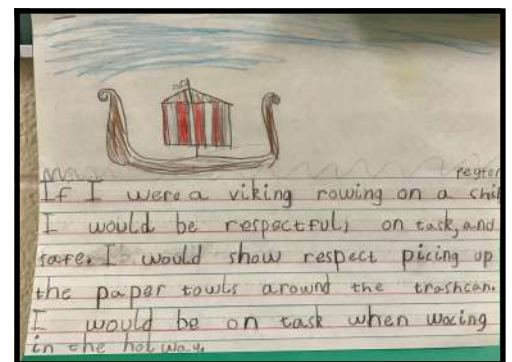 peyton
If I were a viking rowing on a ship
I would be respectful, on task, and
safe. I would show respect picing up
the paper towls around the trashcan.
I would be on task when wocing
in the holway.